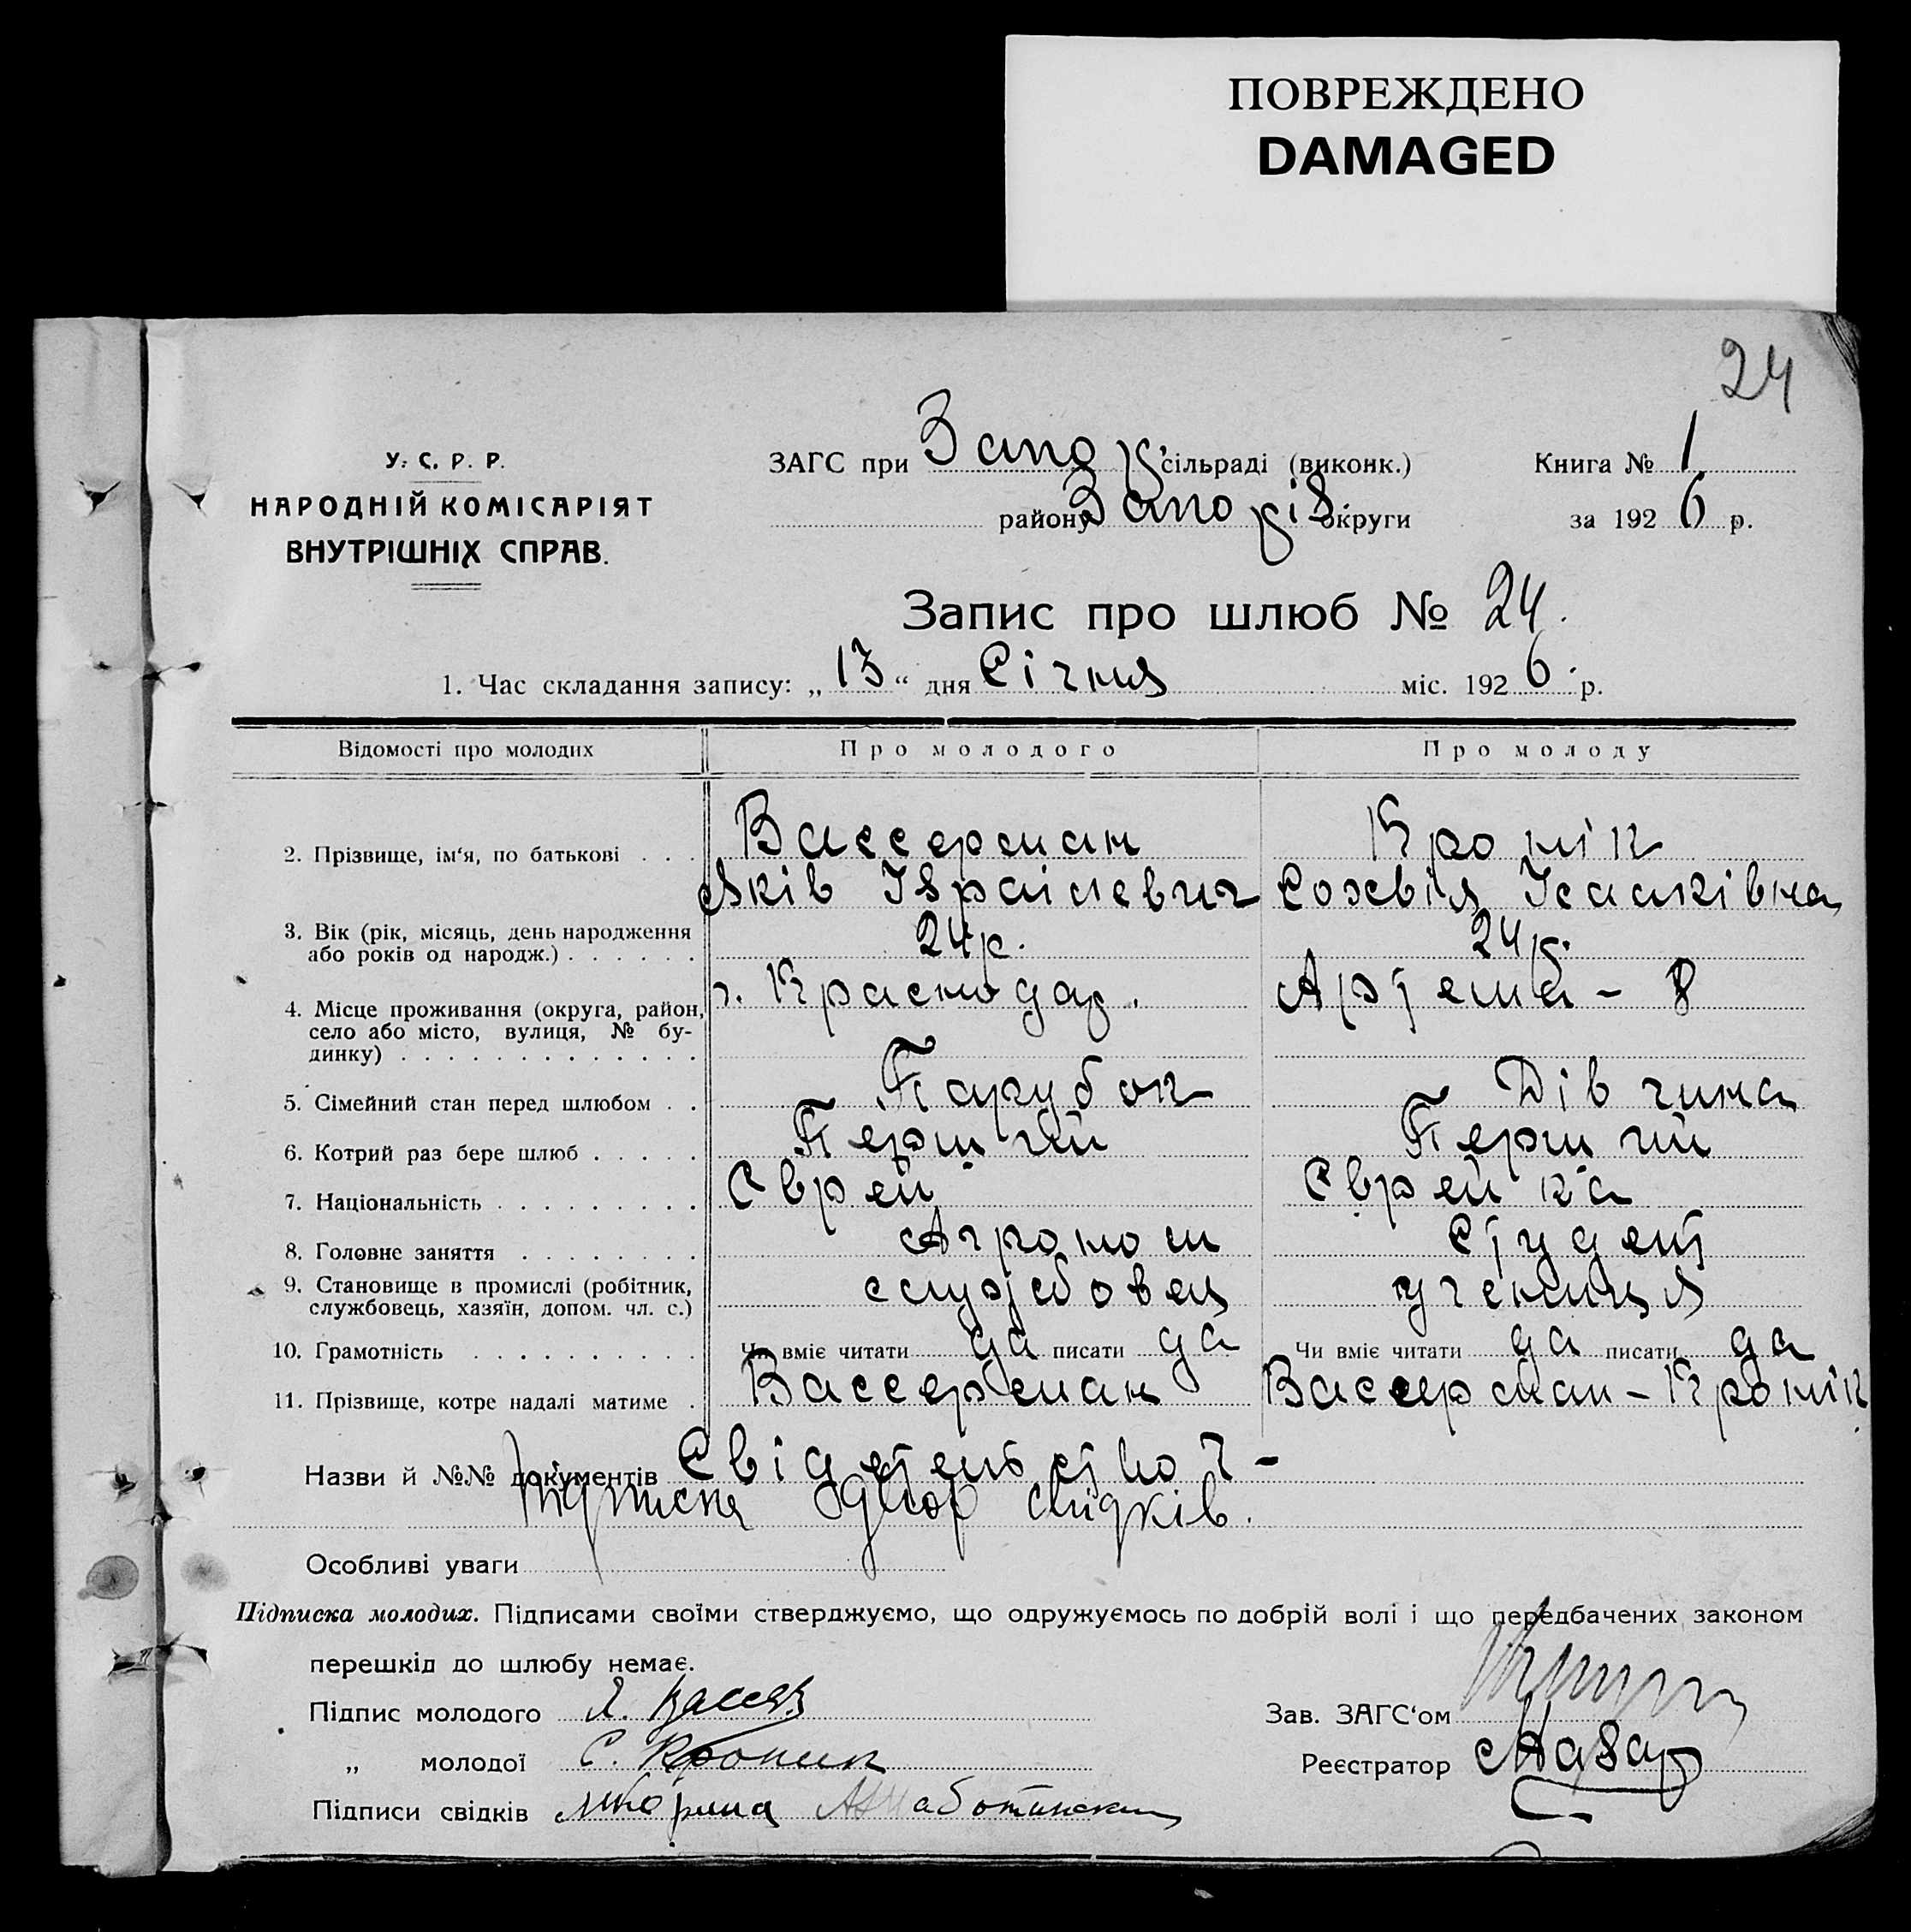 ПОВРЕЖДЕНО
DAMAGED
24
У. С. Р. Р.
НАРОДНІЙ КОМІСАРІЯТ
ВНУТРІШНІХ СПРАВ.
ЗАГС при Запор. сільраді (виконк.)
Книга № 1
району Запоріз. округи
за 1926 р.
Запис про шлюб № 24.
1. Час складання запису: „13“ дня Січня міс. 1926 р.
Відомості про молодих Про молодого Про молоду
2. Прізвище, ім'я, по батькові . . . Вассерман Кронік
Яків Ізраілевич Софвія Ісааківна
3. Вік (рік, місяць, день народження
або років од народж.) . . . . . . 24 р. 24 р.
4. Місце проживання (округа, район, г. Краснодар. Артема - 8
село або місто, вулиця, № бу-
динку) . . . . . . . . . . . . .
5. Сімейний стан перед шлюбом . . Парубок Дівчина
6. Котрий раз бере шлюб . . . . . Перший Перший
7. Національність . . . . . . . . . Єврей Єврейка
8. Головне заняття . . . . . . . . Агроном Студент
9. Становище в промислі (робітник, служbовец учениця
службовець, хазяїн, допом. чл. с.)
10. Грамотність . . . . . . . . . . Чи вміє читати да писати да Чи вміє читати да писати да
11. Прізвище, котре надалі матиме . Вассерман Вассерман-Кронік
Назви й №№ документів Свідетельство 7 -
Підписка двох свідків.
Особливі уваги
Підписка молодих. Підписами своїми стверджуємо, що одружуємось по добрій волі і що передбачених законом
перешкід до шлюбу немає.
Підпис молодого Я. Вассер
Зав. ЗАГС'ом
„ молодої С. Кроник
Реєстратор Назар
Підписи свідків